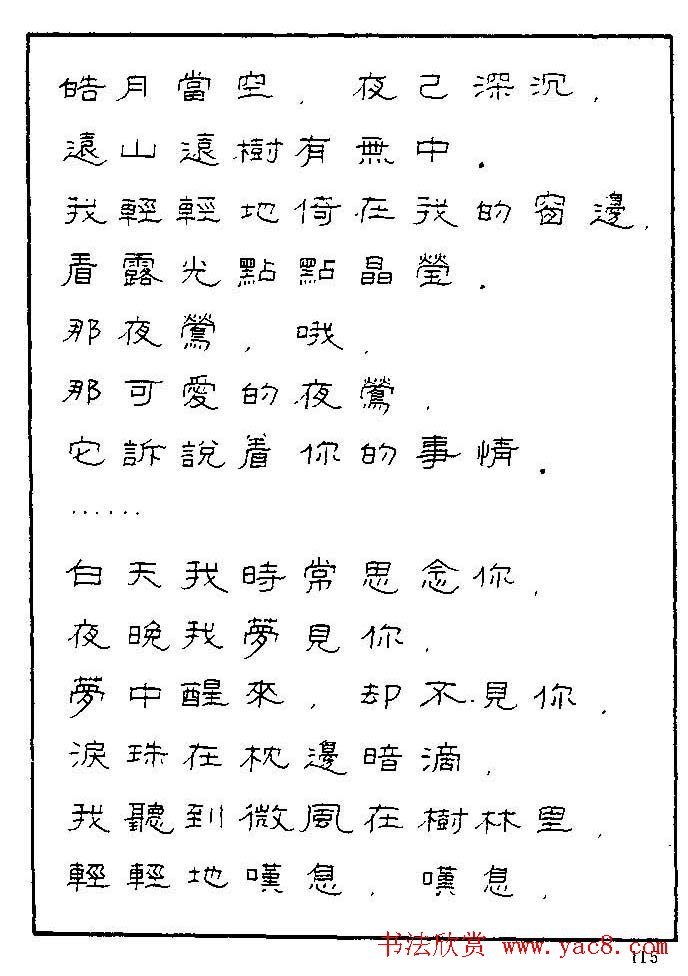 皓月當空，夜己深沉，
遠山遠樹有無中．
我輕輕地倚在我的窗邊，
看露光點點晶瑩．
那夜鶯，哦，
那可愛的夜鶯，
它訴說着你的事情．
……
白天我時常思念你，
夜晚我夢見你，
夢中醒來，却不見你，
淚珠在枕邊暗滴，
我聽到微風在樹林里，
輕輕地嘆息，嘆息，
书法欣赏 www.yac8.com
115